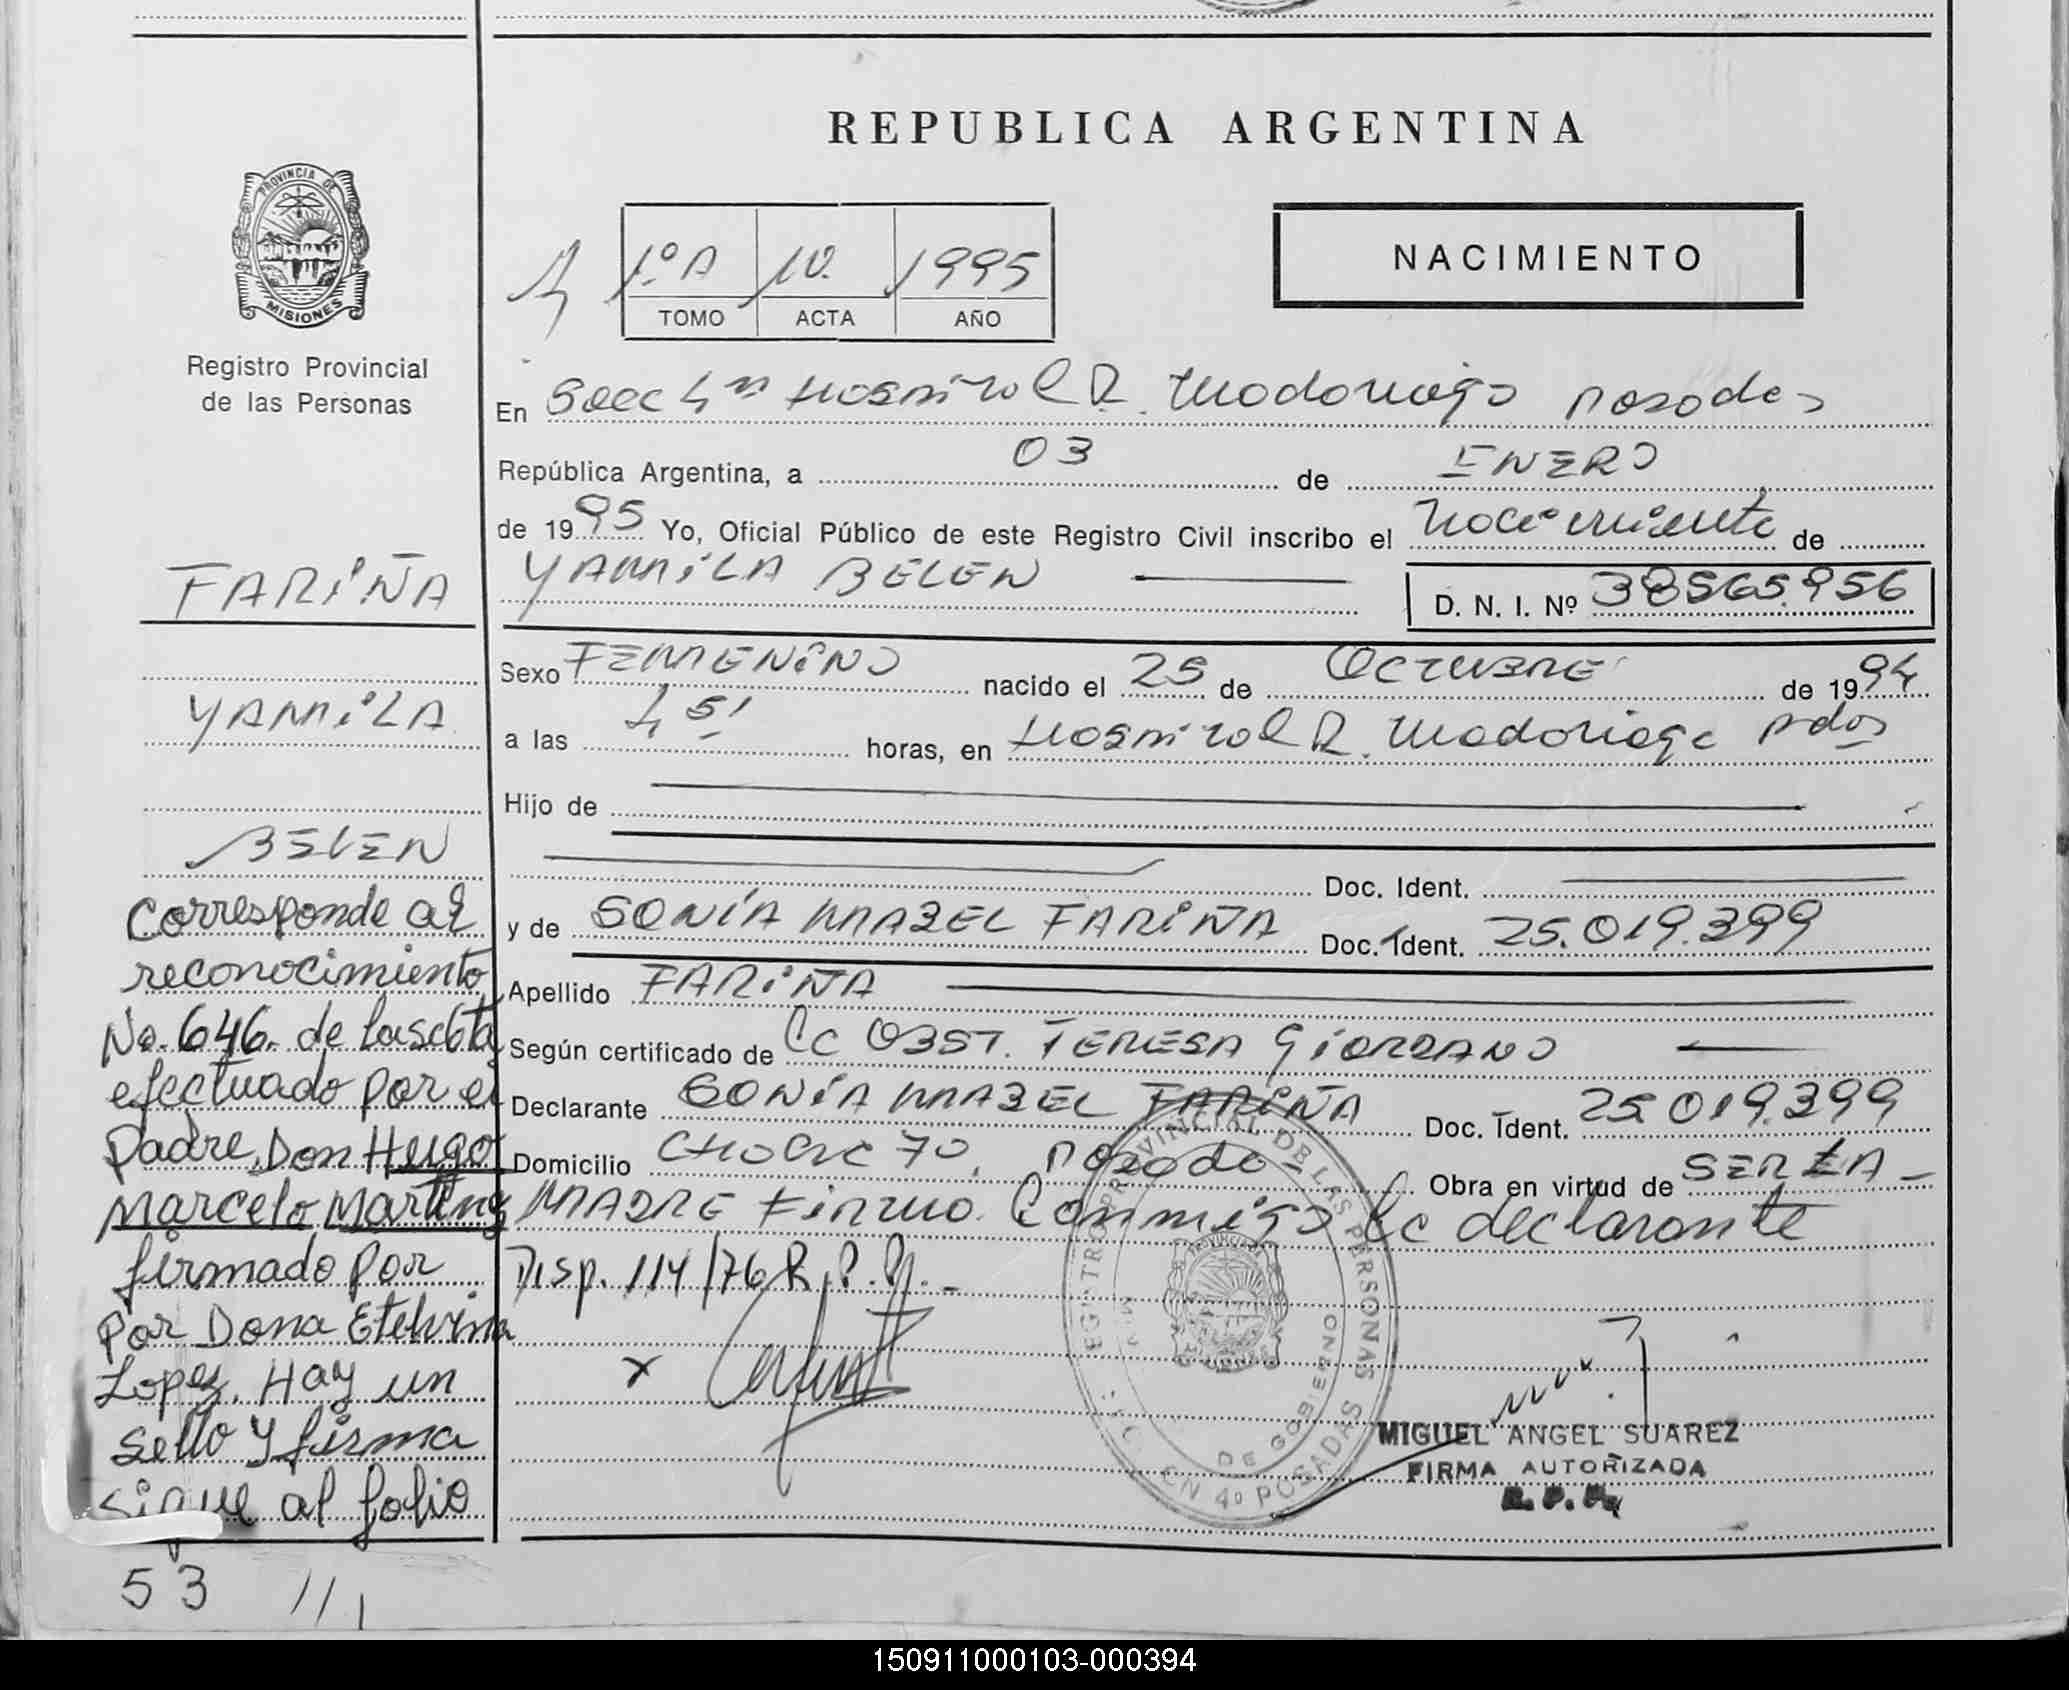 REPUBLICA ARGENTINA
PROVINCIA DE
MISIONES
1º A 10 1995
TOMO ACTA AÑO
NACIMIENTO
Registro Provincial
de las Personas
En Secc 4ta Hospital R. Madariaga Posadas
República Argentina, a 03 de ENERO
de 1995 Yo, Oficial Público de este Registro Civil inscribo el Nacimiento de
YAMILA BELEN
D. N. I. Nº 38565.956
FARIÑA
YAMILA
BELEN
Corresponde al
reconocimiento
No. 646. de
efectuado por el
Padre, Don Hugo
Marcelo Martinez
firmado por
por Dona Etelvina
Lopez. Hay un
Sello y firma
sigue al folio
53 ///
Sexo FEMENINO nacido el 25 de OCTUBRE de 1994
a las horas, en Hospital R. Madariaga Pdas
Hijo de
Doc. Ident.
y de SONIA MABEL FARIÑA Doc. Ident. 25.019.399
Apellido FARIÑA
Según certificado de la OBST. TERESA GIORDANO
Declarante SONIA MABEL FARIÑA Doc. Ident. 25.019.399
Domicilio 70, Posadas Obra en virtud de SER LA
MADRE Firmo Conmigo la declarante
Disp. 114/76 R.P.P.-
x
REGISTRO PROVINCIAL DE LAS PERSONAS
DE GOBIERNO
EN 4º POSADAS
MIGUEL ANGEL SUAREZ
FIRMA AUTORIZADA
R. P. P.
150911000103-000394